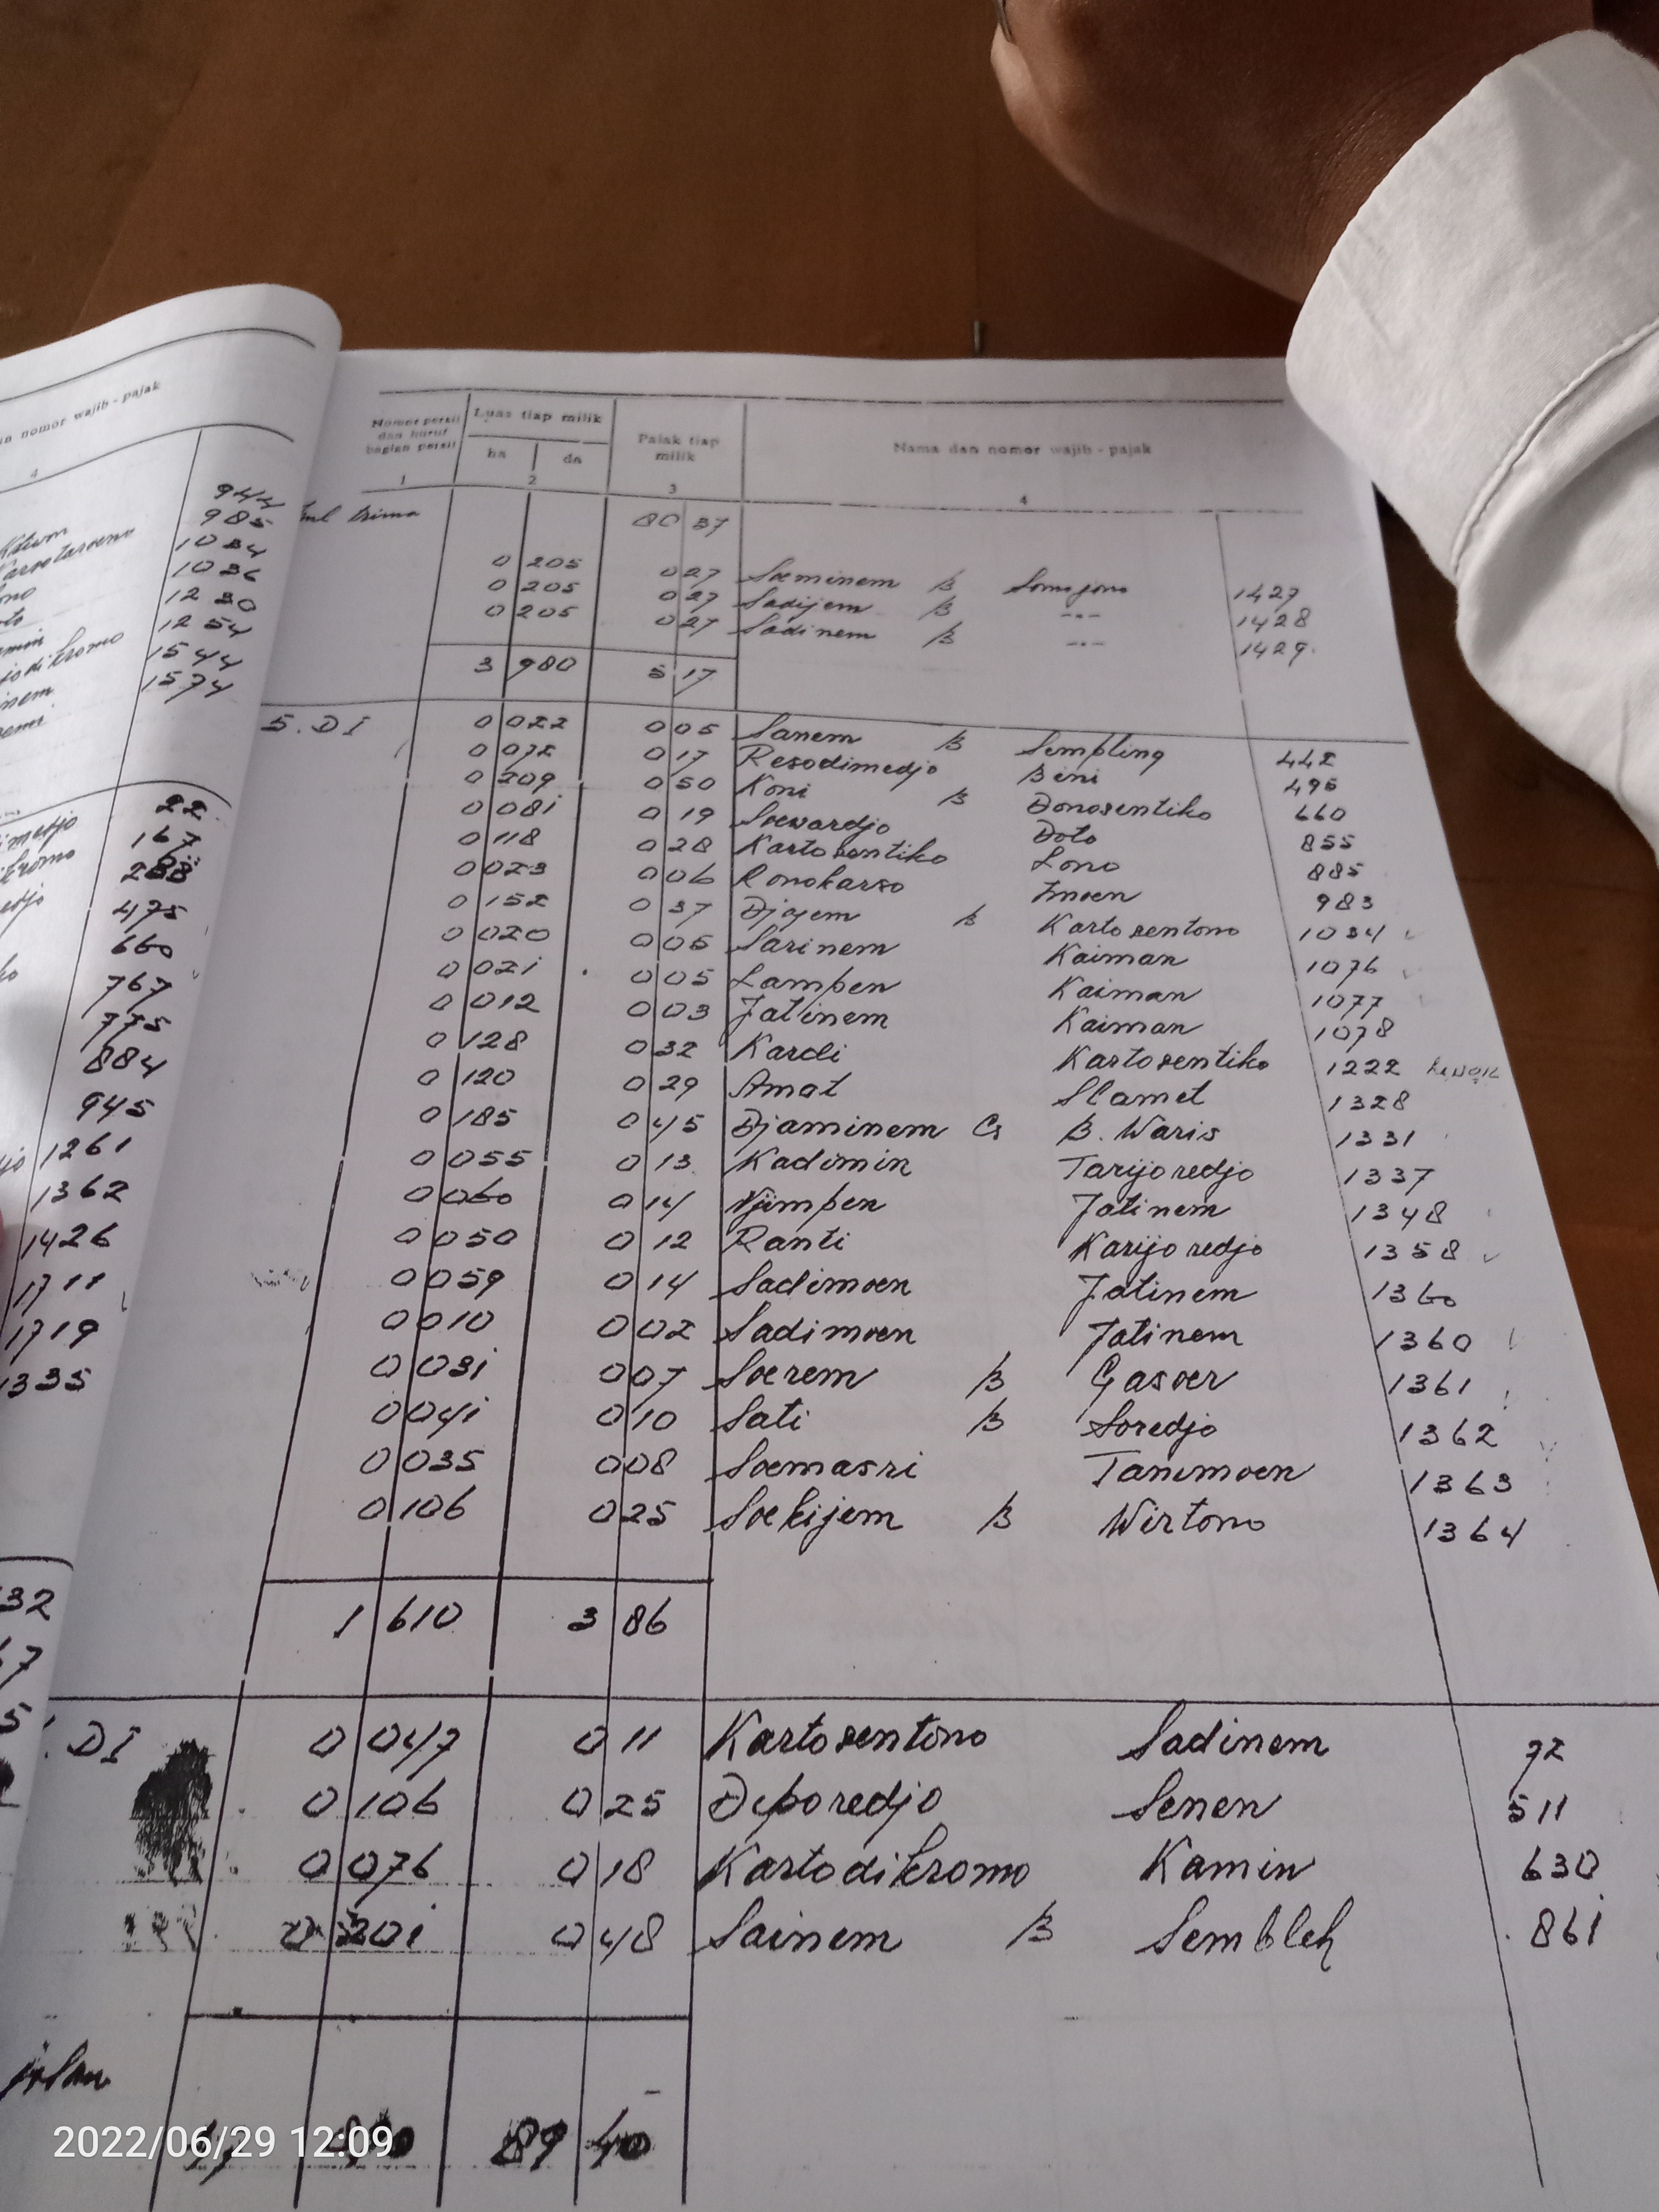 nomor wajib - pajak
4
944
985
1034
1036
1230
1254
1544
1574
22
167
288
475
660
767
775
884
945
1261
1362
1426
1711
1719
1335
32
Nomor persil dan huruf bagian persil
Luas tiap milik
ha da
Pajak tiap milik
Nama dan nomor wajib - pajak
1 2 3 4
80 37
0 205 0 27 Soeminem B Somojono 1427
0 205 0 27 Sadijem B -"- 1428
0 205 0 27 Sadinem B -"- 1429
3 980 5 17
5. DI 0 022 0 05 Sanem B Sempling 442
0 072 0 17 Resodimedjo Bini 495
0 209 0 50 Koni B Donosentiko 660
0 081 0 19 Soewardjo Doto 855
0 118 0 28 Kartosentiko Lono 885
0 023 0 06 Ronokarso Imoen 983
0 152 0 37 Djajem B Kartosentono 1034
0 020 0 05 Sarinem Kaiman 1076
0 021 0 05 Lampen Kaiman 1077
0 012 0 03 Jatinem Kaiman 1078
0 128 0 32 Kardi Kartosentiko 1222
0 120 0 29 Amat Slamet 1328
0 185 0 45 Djaminem Cs B. Waris 1331
0 055 0 13 Kadimin Tarijoredjo 1337
0 060 0 14 Njimpen Jatinem 1348
0 050 0 12 Ranti Karijoredjo 1358
0 059 0 14 Sadimoen Jatinem 1360
0 010 0 02 Sadimoen Jatinem 1360
0 031 0 07 Soerem B Gasoer 1361
0 041 0 10 Sati B Soredjo 1362
0 035 0 08 Soemasri Tanimoen 1363
0 106 0 25 Soekijem B Wirtono 1364
1 610 3 86
DI 0 047 0 11 Kartosentono Sadinem 72
0 106 0 25 Deporedjo Senen 511
0 076 0 18 Kartodikromo Kamin 630
0 201 0 48 Sainem B Sembleh 861
89 40
2022/06/29 12:09